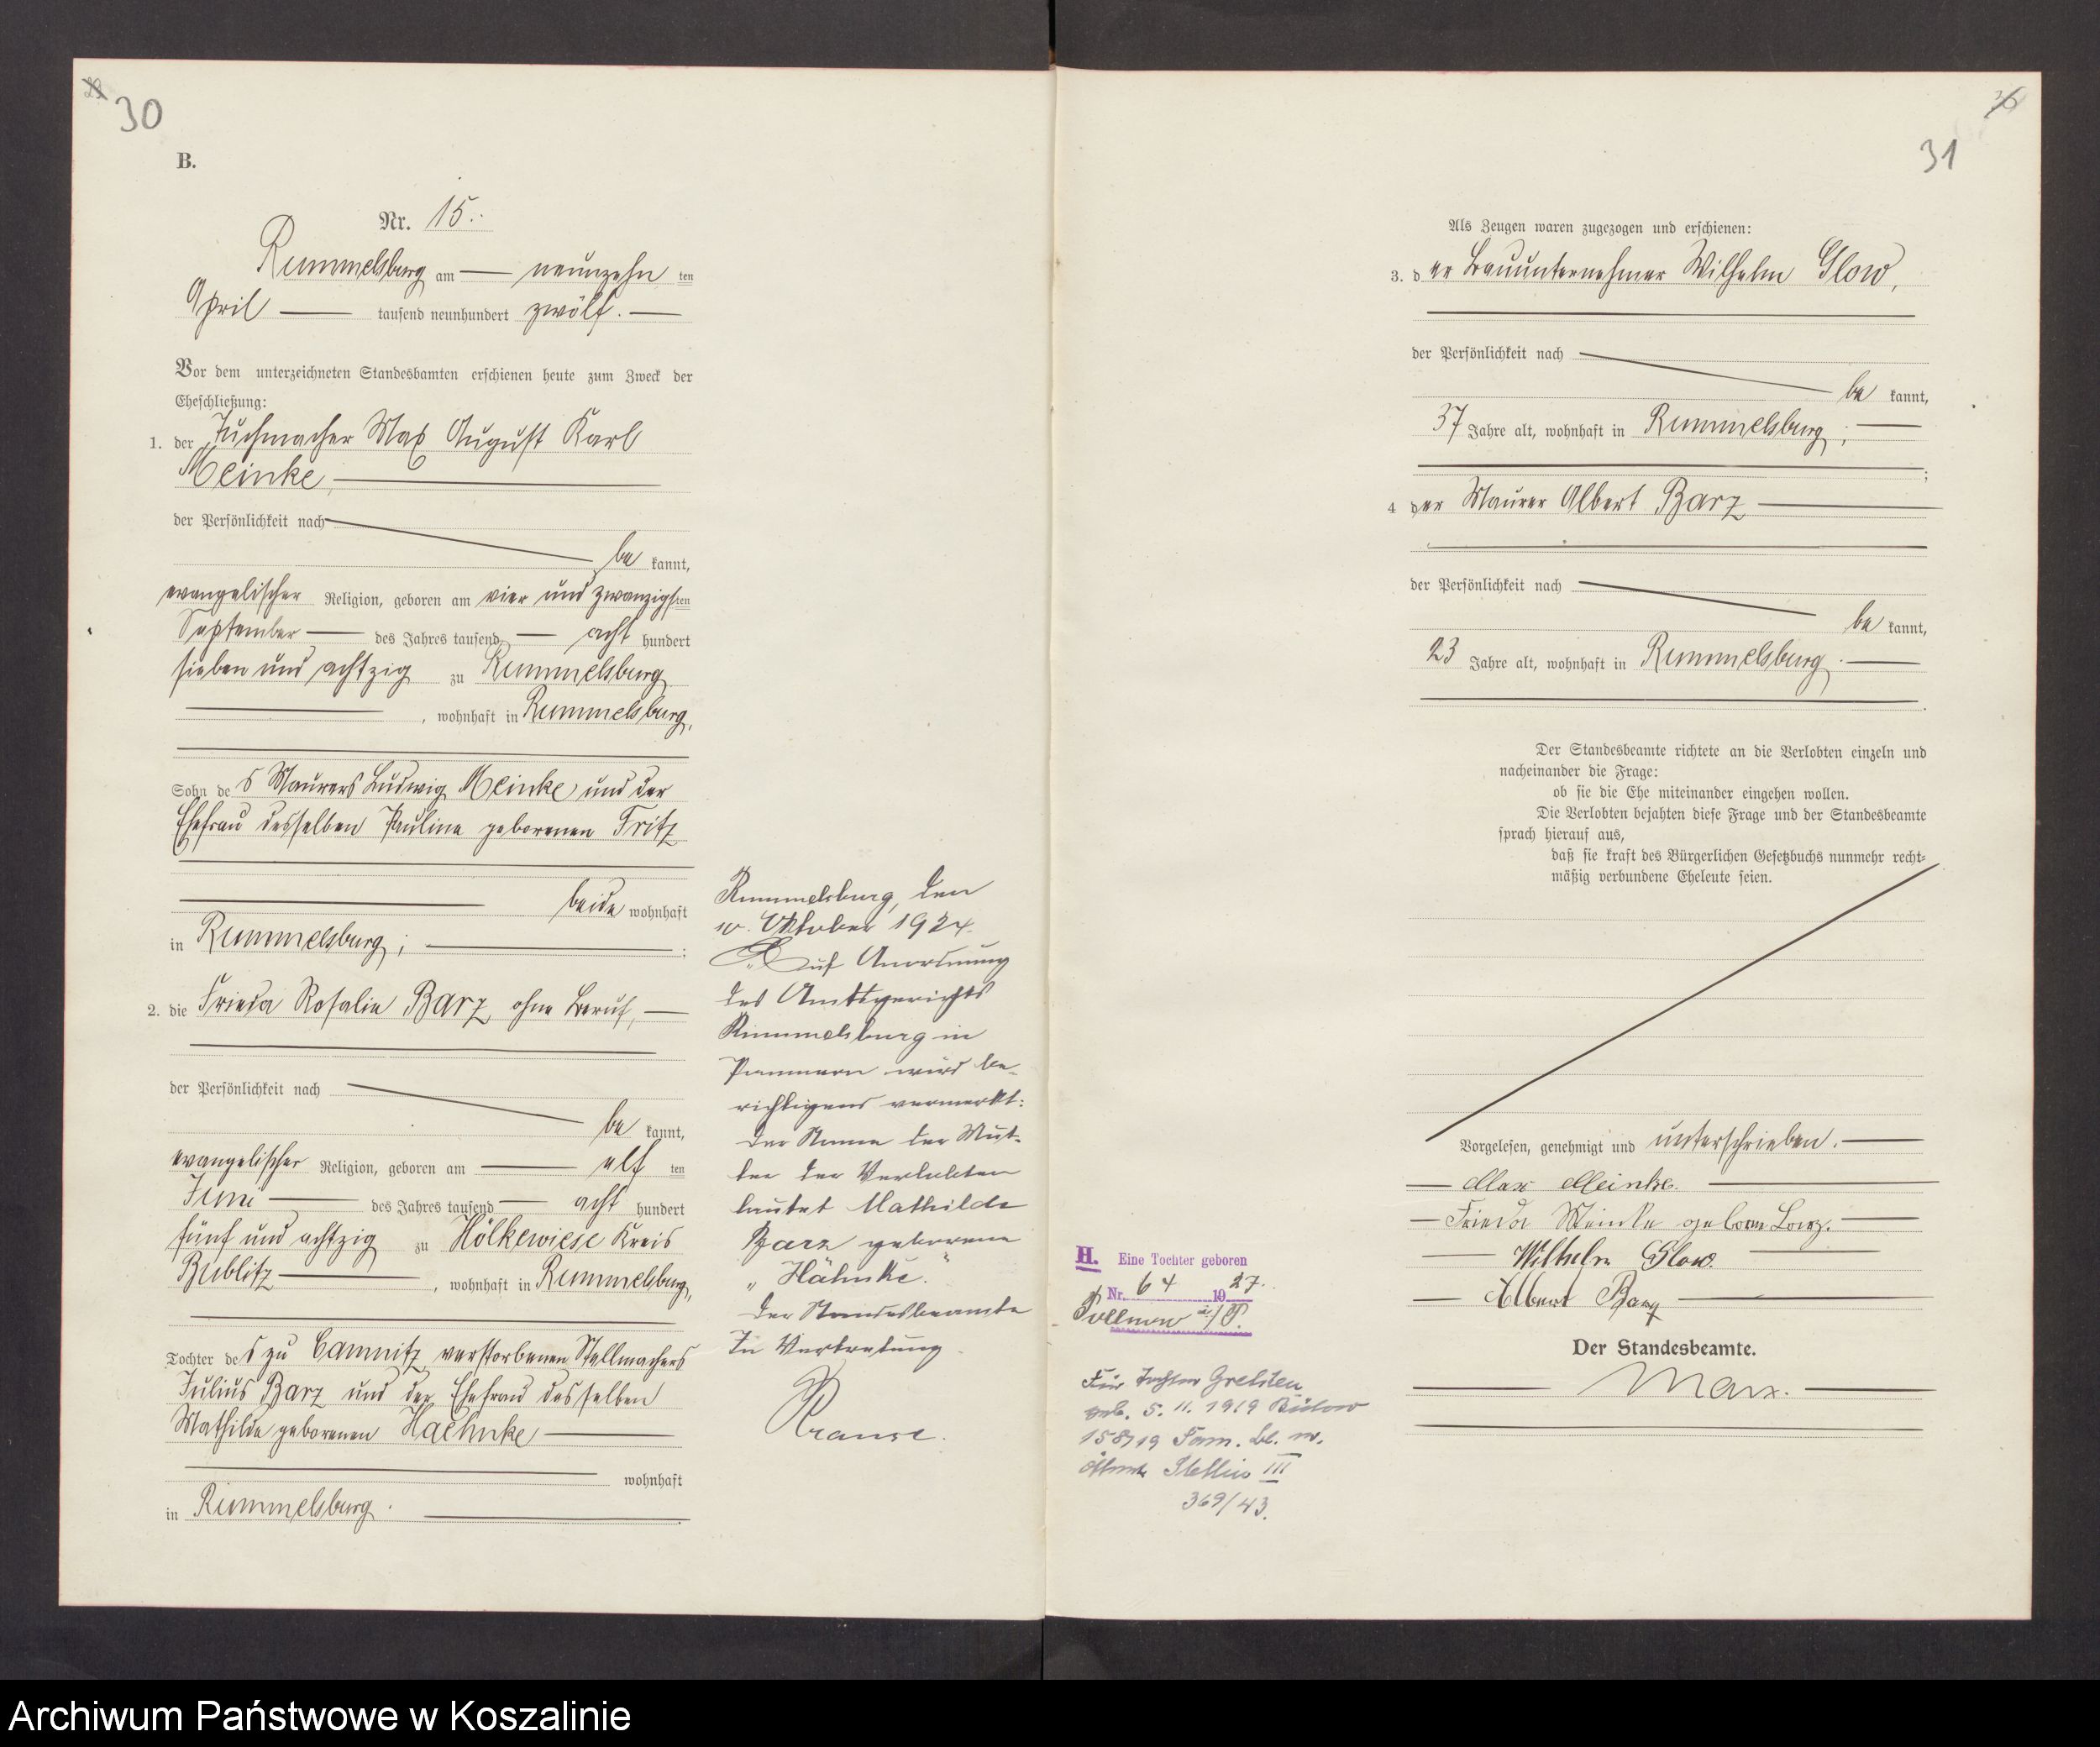 30
B.
Nr. 15.
Rummelsburg am neunzehn ten
April tausend neunhundert zwölf.
Vor dem unterzeichneten Standesbamten erschienen heute zum Zweck der
Eheschließung:
1. der Tuchmacher Max August Karl
Meinke,
der Persönlichkeit nach
be kannt,
evangelischer Religion, geboren am vier und zwanzigsten
September des Jahres tausend acht hundert
sieben und achtzig zu Rummelsburg
, wohnhaft in Rummelsburg,
Sohn des Maurers Ludwig Meinke und der
Ehefrau desselben Pauline geborenen Fritz
beide wohnhaft
in Rummelsburg;
2. die Frieda Rosalie Barz, ohne Beruf,
der Persönlichkeit nach
be kannt,
evangelischer Religion, geboren am elf ten
Juni des Jahres tausend acht hundert
fünf und achtzig zu Hölkewiese Kreis
Bublitz, wohnhaft in Rummelsburg,
Tochter des zu Camnitz verstorbenen Stellmachers
Julius Barz und der Ehefrau desselben
Mathilde geborenen Haehnke
wohnhaft
in Rummelsburg.
Rummelsburg, den
10. Oktober 1924.
Auf Anordnung
des Amtsgerichts
Rummelsburg in
Pommern wird be-
richtigend vermerkt:
Der Name der Mut-
ter der Verlobten
lautet Mathilde
Barz geborene
"Hähnke."
Der Standesbeamte
In Vertretung
Krause.
31
Als Zeugen waren zugezogen und erschienen:
3. der Bauunternehmer Wilhelm Glow,
der Persönlichkeit nach
be kannt,
37 Jahre alt, wohnhaft in Rummelsburg;
4 der Maurer Albert Barz
der Persönlichkeit nach
be kannt,
23 Jahre alt, wohnhaft in Rummelsburg.
Der Standesbeamte richtete an die Verlobten einzeln und
nacheinander die Frage:
ob sie die Ehe miteinander eingehen wollen.
Die Verlobten bejahten diese Frage und der Standesbeamte
sprach hierauf aus,
daß sie kraft des Bürgerlichen Gesetzbuchs nunmehr recht-
mäßig verbundene Eheleute seien.
Vorgelesen, genehmigt und unterschrieben.
Max Meinke.
Frieda Meinke geborne Barz.
Wilhelm Glow.
Albert Barz
Der Standesbeamte.
Marx.
H. Eine Tochter geboren
Nr. 64 1927.
Pollnow i/P.
Für Tochter
geb. 5. 11. 1919 Bütow
158/19 Fam. bl. w.
Stettin III
369/43.
Archiwum Państwowe w Koszalinie